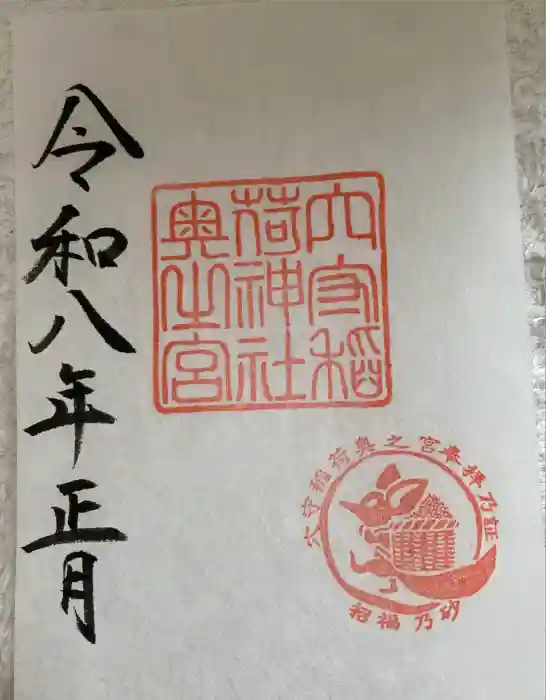 穴守稲
荷神社
奥之宮
穴守稲荷奥之宮奉拝乃証
招福乃砂
令和八年正月